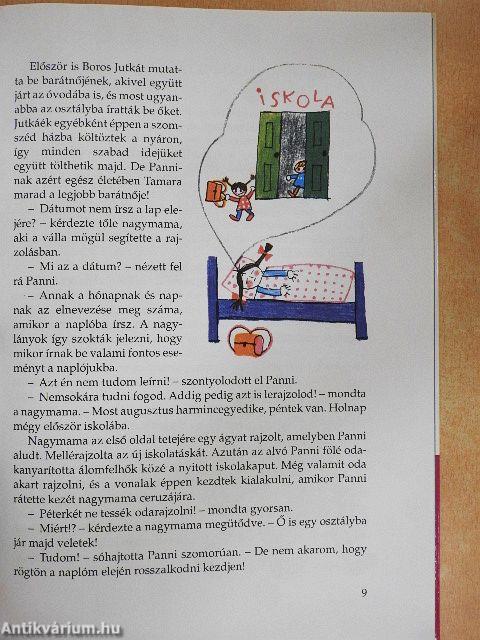 Először is Boros Jutkát mutat-
ta be barátnőjének, akivel együtt
járt az óvodába is, és most ugyan-
abba az osztályba íratták be őket.
Jutkáék egyébként éppen a szom-
széd házba költöztek a nyáron,
így minden szabad idejüket
együtt tölthetik majd. De Panni-
nak azért egész életében Tamara
marad a legjobb barátnője!
– Dátumot nem írsz a lap ele-
jére? – kérdezte tőle nagymama,
aki a válla mögül segítette a raj-
zolásban.
– Mi az a dátum? – nézett fel
rá Panni.
– Annak a hónapnak és nap-
nak az elnevezése meg száma,
amikor a naplóba írsz. A nagy-
lányok így szokták jelezni, hogy
mikor írnak be valami fontos ese-
ményt a naplójukba.
– Azt én nem tudom leírni! – szontyolodott el Panni.
– Nemsokára tudni fogod. Addig pedig azt is lerajzolod! – mondta
a nagymama. – Most augusztus harmincegyedike, péntek van. Holnap
mégy először iskolába.
Nagymama az első oldal tetejére egy ágyat rajzolt, amelyben Panni
aludt. Mellérajzolta az új iskolatáskát. Azután az alvó Panni fölé oda-
kanyarította álomfelhők közé a nyitott iskolakaput. Még valamit oda
akart rajzolni, és a vonalak éppen kezdtek kialakulni, amikor Panni
rátette kezét nagymama ceruzájára.
– Péterkét ne tessék odarajzolni! – mondta gyorsan.
– Miért!? – kérdezte a nagymama megütődve. – Ő is egy osztályba
jár majd veletek!
– Tudom! – sóhajtotta Panni szomorúan. – De nem akarom, hogy
rögtön a naplóm elején rosszalkodni kezdjen!
ISKOLA
9
Antikvárium.hu